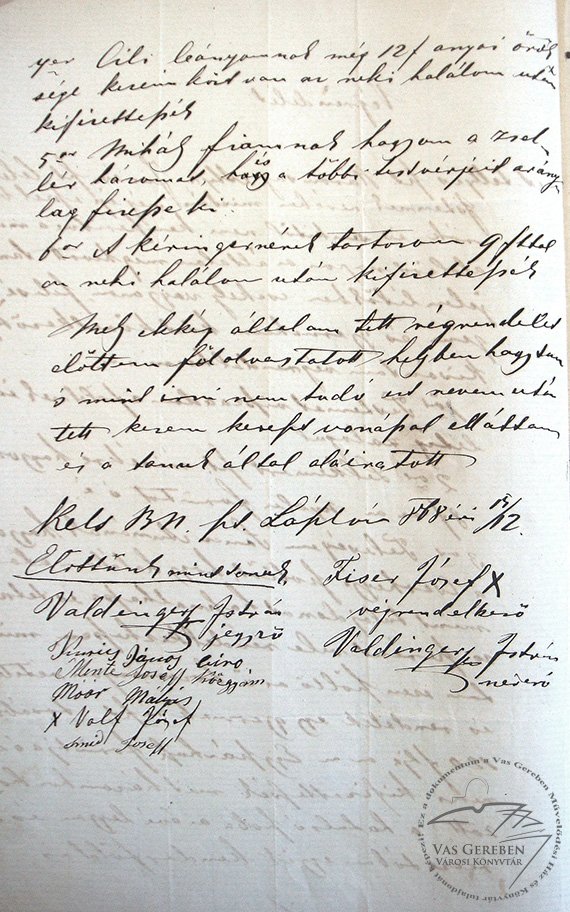 Cili leányomnak még 12f anyai örök
sége kezeim közt van az neki halálom után
kifizettessék
5ör Mihály fiamnak hagyom a zsel
lér házomat, hogy is a többi testvérjeit arány
lag fizesse ki.
6or A tartozom 9 fttal
az neki halálom után kifizettessék
Mely ekkép általam tett végrendelet
előttem fölolvastatott helyben hagytam
s mint irni nem tudó ezt nevem után
tett kezem keresztvonásal elláttam
és a tanuk által aláiratott
Kelt BN. pt. Lászlón 868 évi 15/12.
Előttünk mint tanuk
Valdinger István
jegyző
János biro
Mente Joseff
Móór Mátyás
x Volf Józef
Smid Joseff
Fiser József x
végrendelkező
Valdinger István
névíró
Ez a dokumentum a Vas Gereben Művelődési Ház és Könyvtár tulajdonát képezi!
VAS GEREBEN
VÁROSI KÖNYVTÁR